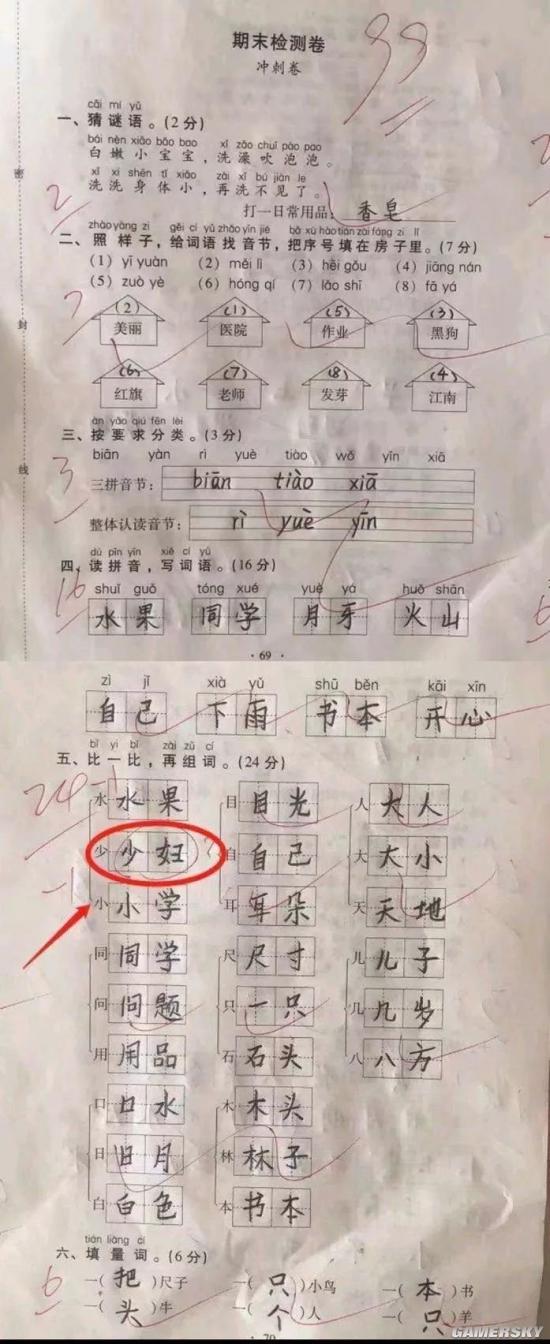 99
期末检测卷
冲刺卷
cāi mí yǔ
一、猜谜语。(2分)
bái nèn xiǎo bǎo bao xǐ zǎo chuī pào pao
白嫩小宝宝，洗澡吹泡泡。
xǐ xǐ shēn tǐ xiǎo zài xǐ bú jiàn le
洗洗身体小，再洗不见了。
2
打一日常用品：香皂
zhào yàng zi gěi cí yǔ zhǎo yīn jié bǎ xù hào tián zài fáng zi lǐ
二、照样子，给词语找音节，把序号填在房子里。(7分)
(1) yī yuàn (2) měi lì (3) hēi gǒu (4) jiāng nán
(5) zuò yè (6) hóng qí (7) lǎo shī (8) fā yá
7
(2) (1) (5) (3)
美丽 医院 作业 黑狗
(6) (7) (8) (4)
红旗 老师 发芽 江南
àn yāo qiú fēn lèi
三、按要求分类。(3分)
biān yàn rì yuè tiào wǒ yīn xiā
3
三拼音节：biān tiào xiā
整体认读音节：rì yuè yīn
dú pīn yīn xiě cí yǔ
四、读拼音，写词语。(16分)
16
shuǐ guǒ tóng xué yuè yá huǒ shān
水果 同学 月牙 火山
· 69 ·
zì jǐ xià yǔ shū běn kāi xīn
自己 下雨 书本 开心
bǐ yi bǐ zài zǔ cí
五、比一比，再组词。(24分)
24-1
水 水果 目 目光 人 大人
少 少妇 ? 自 自己 大 大小
-1
小 小学 耳 耳朵 天 天地
同 同学 尺 尺寸 儿 儿子
问 问题 只 一只 几 几岁
用 用品 石 石头 八 八方
口 口水 木 木头
日 日月 林 林子
白 白色 本 书本
tián liàng cí
六、填量词。(6分)
6
一(把)尺子 一(只)小鸟 一(本)书
一(头)牛 一(个)人 一(只)羊
70
密
封
线
GAMERSKY